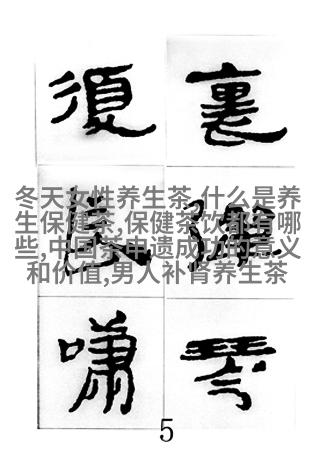 裏彈琴
復長嘯
冬天女性养生茶,什么是养
生保健茶,保健茶饮都有哪
些,中国茶申遗成功的意义
和价值,男人补肾养生茶
5